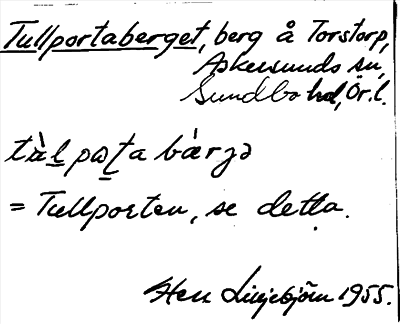 Tullportaberget, berg å Torstorp,
Askersunds sn,
Sundbo hd, Ör. l.
tàl pata bàrjə
= Tullporten, se detta.
Lillebjörn 1955.